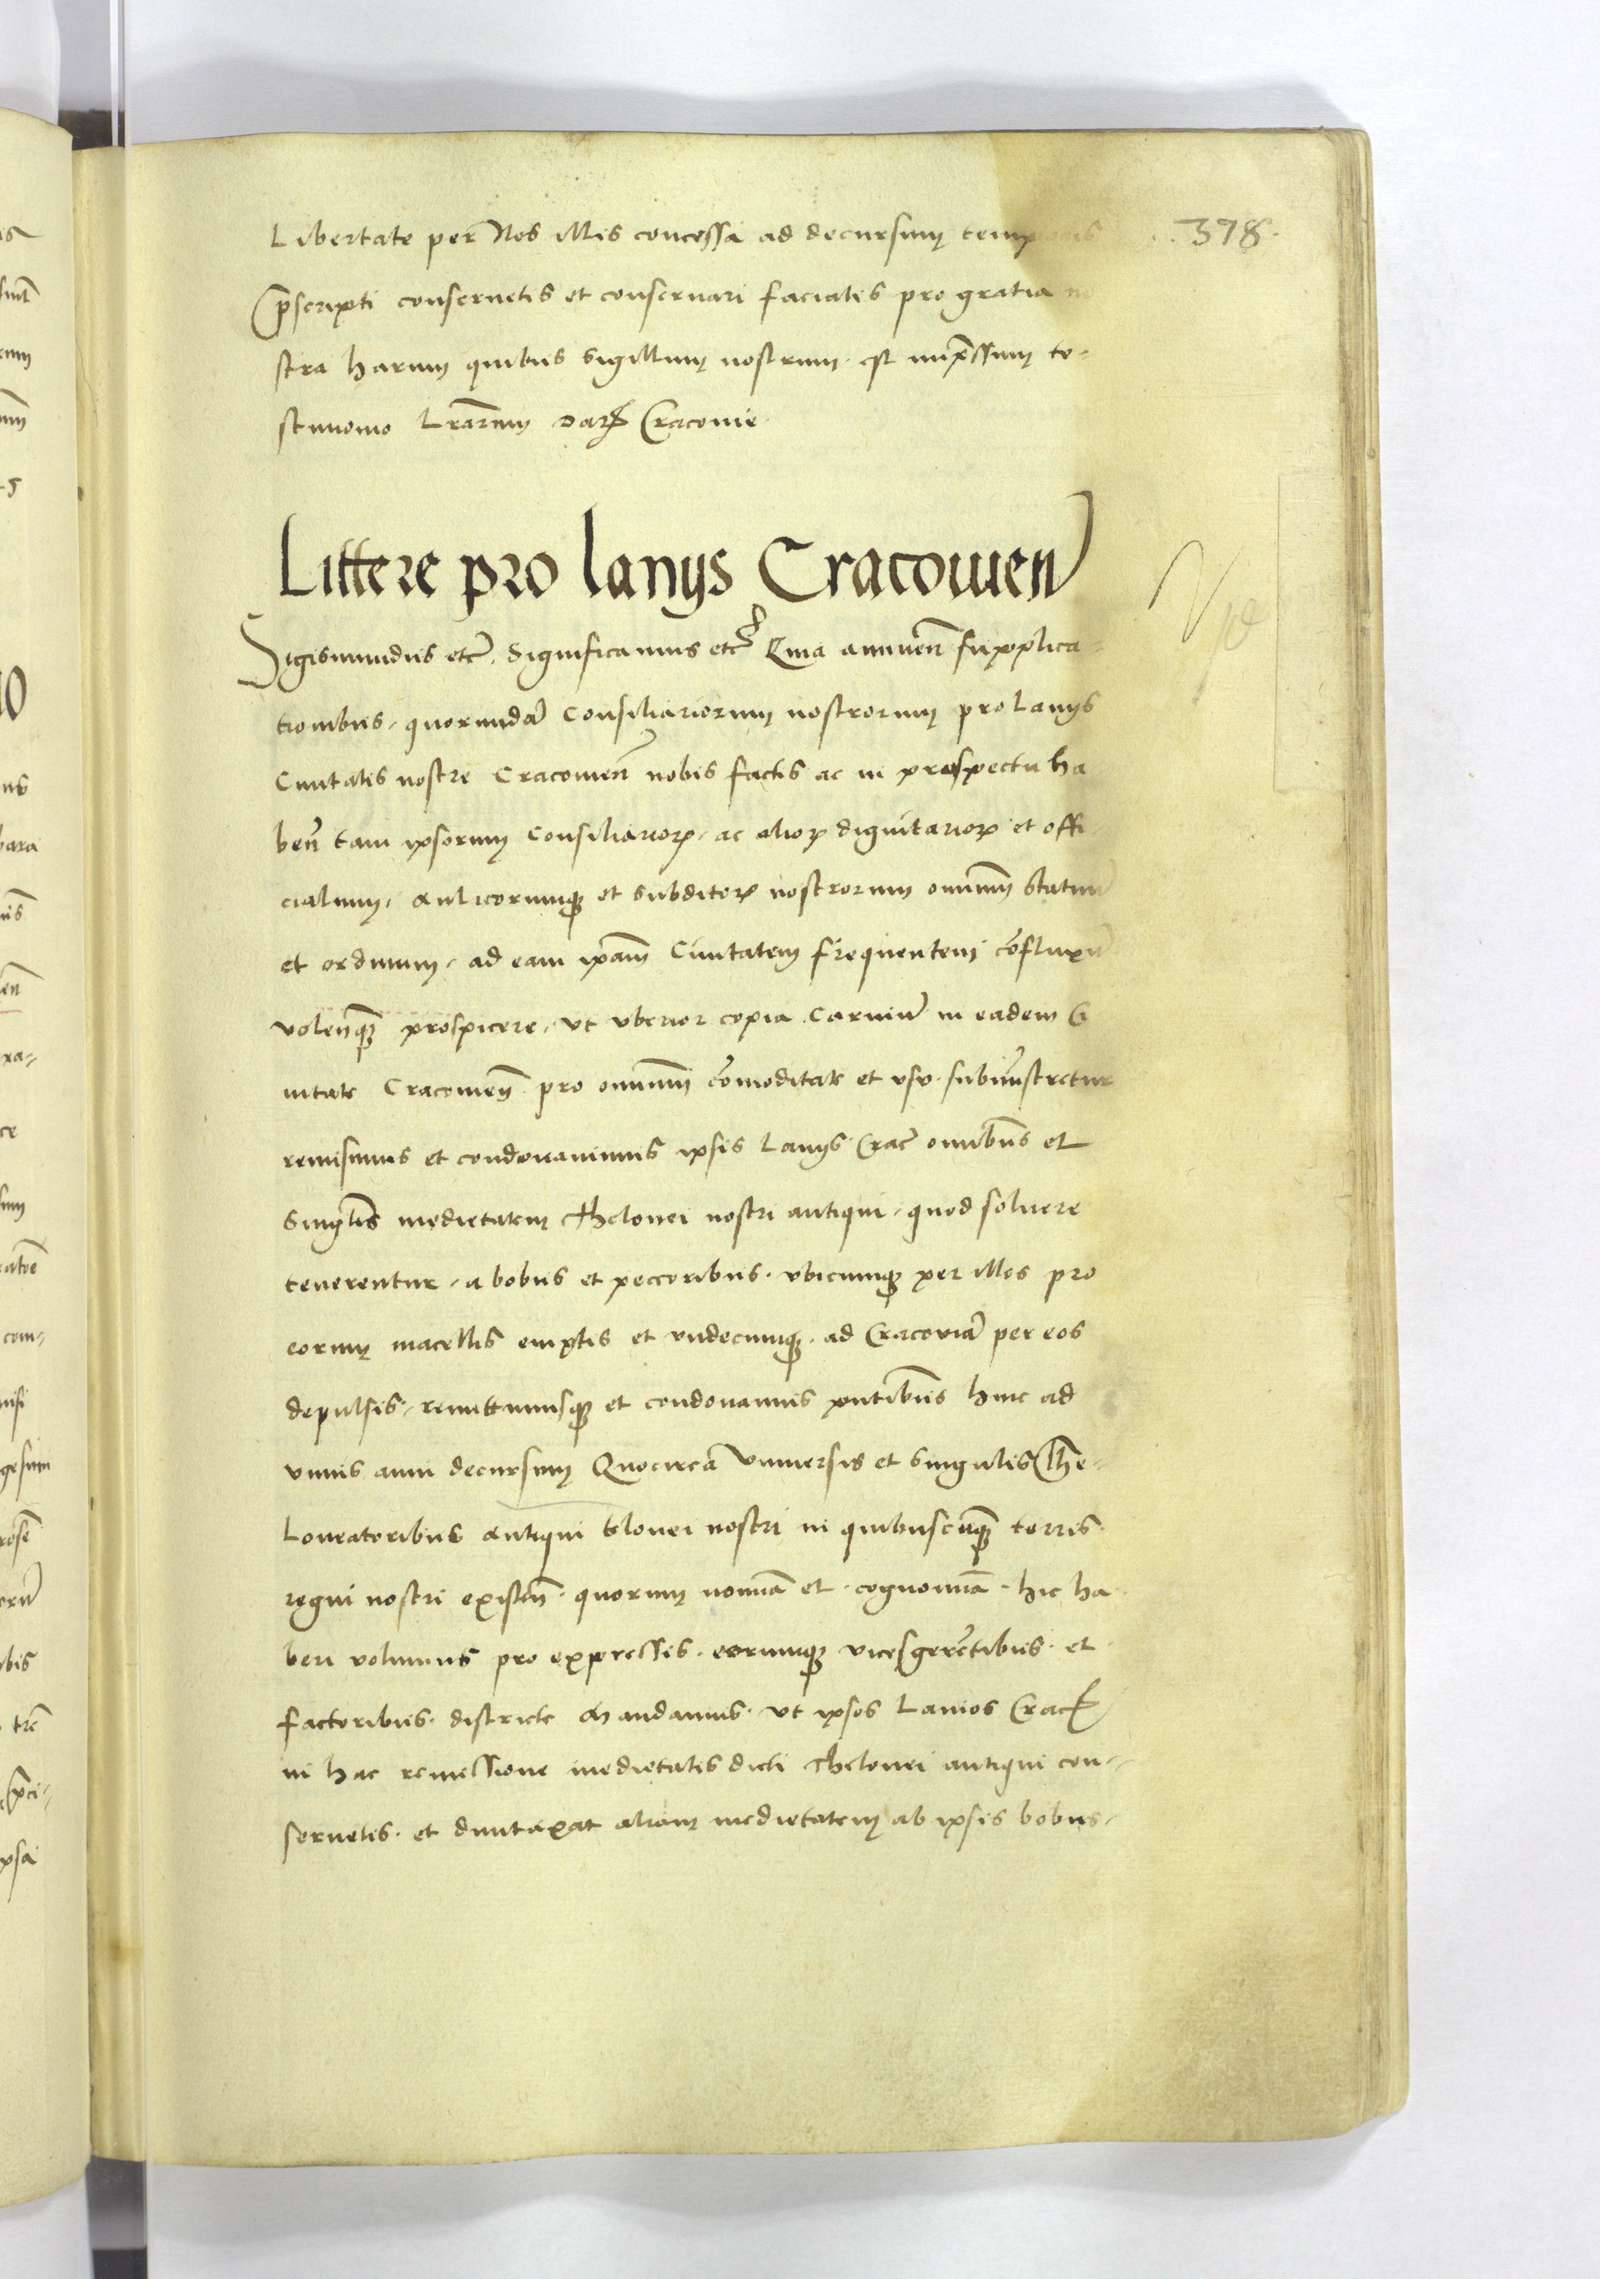 378.
Libertate per Nos illis concessa ad decursum
p̄scripti conseruetis et conseruari faciatis pro gratia no
stra harum quibus Sigillum nostrum est imp̄ssum te-
stimonio Lr̄arum Dat̄ Cracouie
Littere pro lanijs Cracouien̄
Sigismundus etc̄. Significamus etc̄ Quia annuen̄ supplica-
tionibus quorundā Consiliariorum nostrorum pro Lanijs
Ciuitatis nostre Cracouien̄ nobis factis ac in prospectu ha
ben̄ tam ipsorum Consiliarioꝝ ac alioꝝ dignitarioꝝ et offi
cialium, Aulicorumqꝫ et Subditoꝝ nostrorum omniūm Statuū
et ordinum ad eam ip̄am Ciuitatem frequentem cōfluxū
volen̄qꝫ prospicere, vt vberior copia Carniū in eadem Ci
uitate Cracouien̄ pro omniūm cōmoditate et vsu subiūnstretur
remisimus et condonauimus ipsis Lanijs Crac̄ omibūs et
Singlīs medietatem Thelonei nostri antiqui quod soluere
tenerentur a bobus et peccoribus vbicumqꝫ per illos pro
eorum macellis emptis et vndecumqꝫ ad Cracouiā per eos
depulsis remittimusqꝫ et condonamus pn̄tibus hinc ad
vnius anni decursum Quocirca Vniuersis et Singulis The-
Loneatoribus Antiqui tlonei nostri in quibuscūqꝫ terris
regni nostri existen̄ quorum nomīa et cognomīa hic ha
beri volumus pro expressis eorumqꝫ vicesgerētibus et
factoribus districte Mandamus vt ipsos Lanios Crac̄
in hac remissione medietatis dicti Thelonei antiqui con-
seruetis et duntaxat aliam medietatem ab ipsis bobus